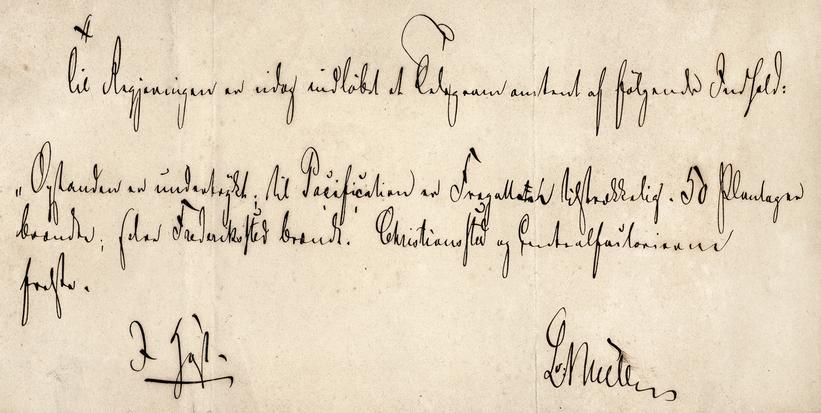 Til Regjeringen er idag indløbet et Telegram omtrent af følgende Indhold:
„Opstanden er undertrykt; til Pacification er Fregatten tilstrækkelig. 50 Plantager
brændte; Frederikssted brændt. Christianssted og Centralfactorierne
frelste.